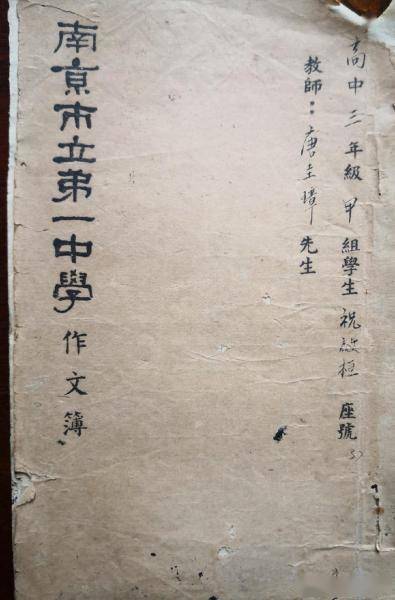 高中三年級甲組學生祝啟桓座號
教師：唐圭璋先生
南京市立第一中學作文簿